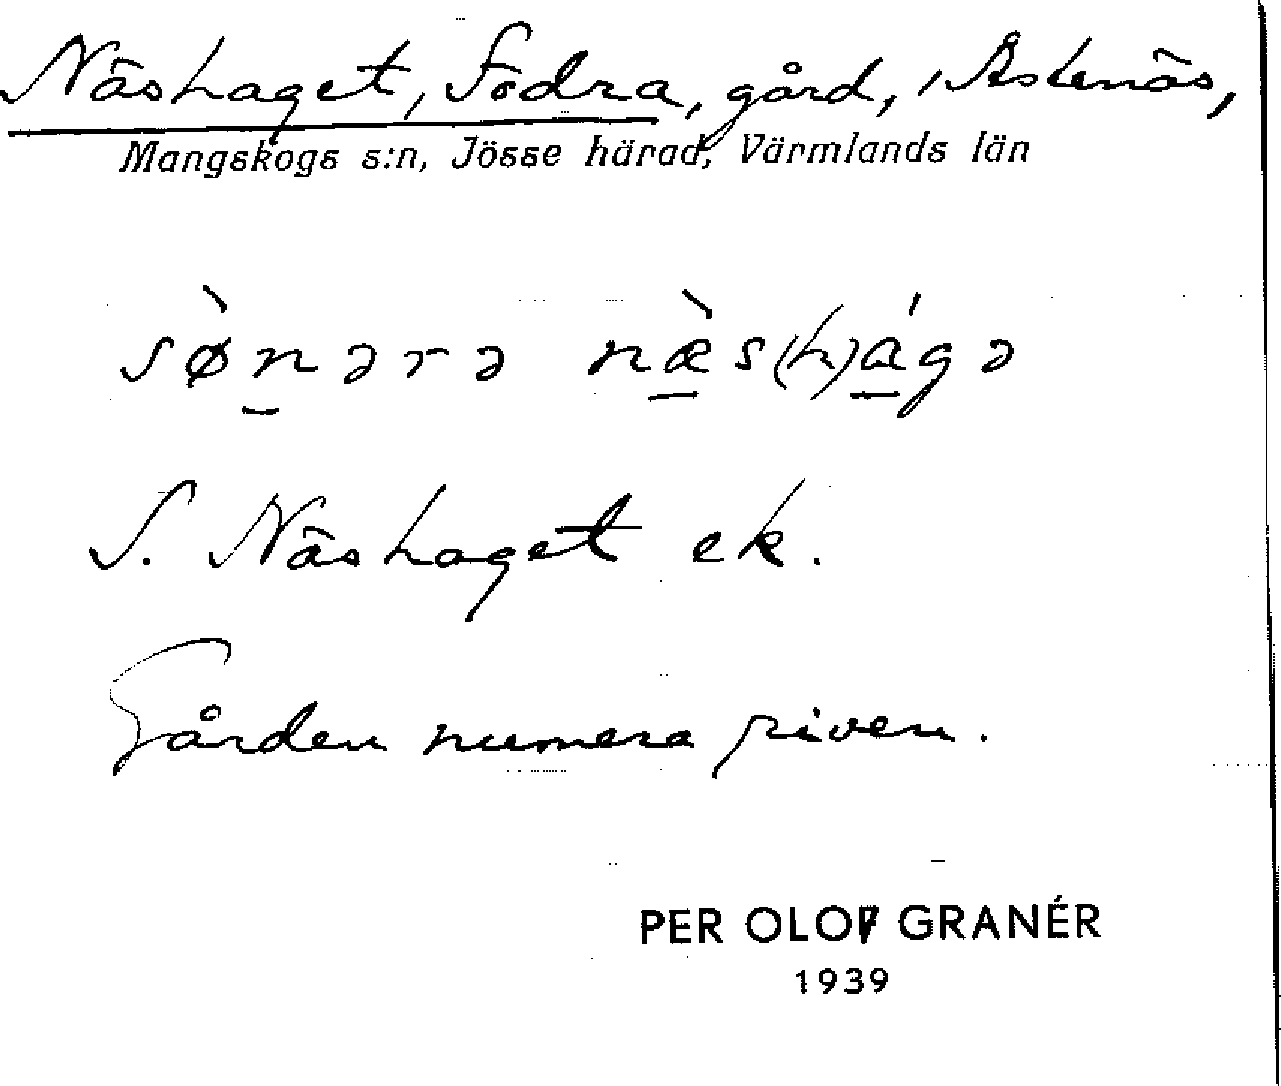 Näshaget, Södra, gård, i Åstenäs,
Mangskogs s:n, Jösse härad, Värmlands län
sø̀n̲ərə næ̲̀s(h)á̲gə
S. Näshaget ek.
Gården numera riven.
PER OLOF GRANÉR
1939